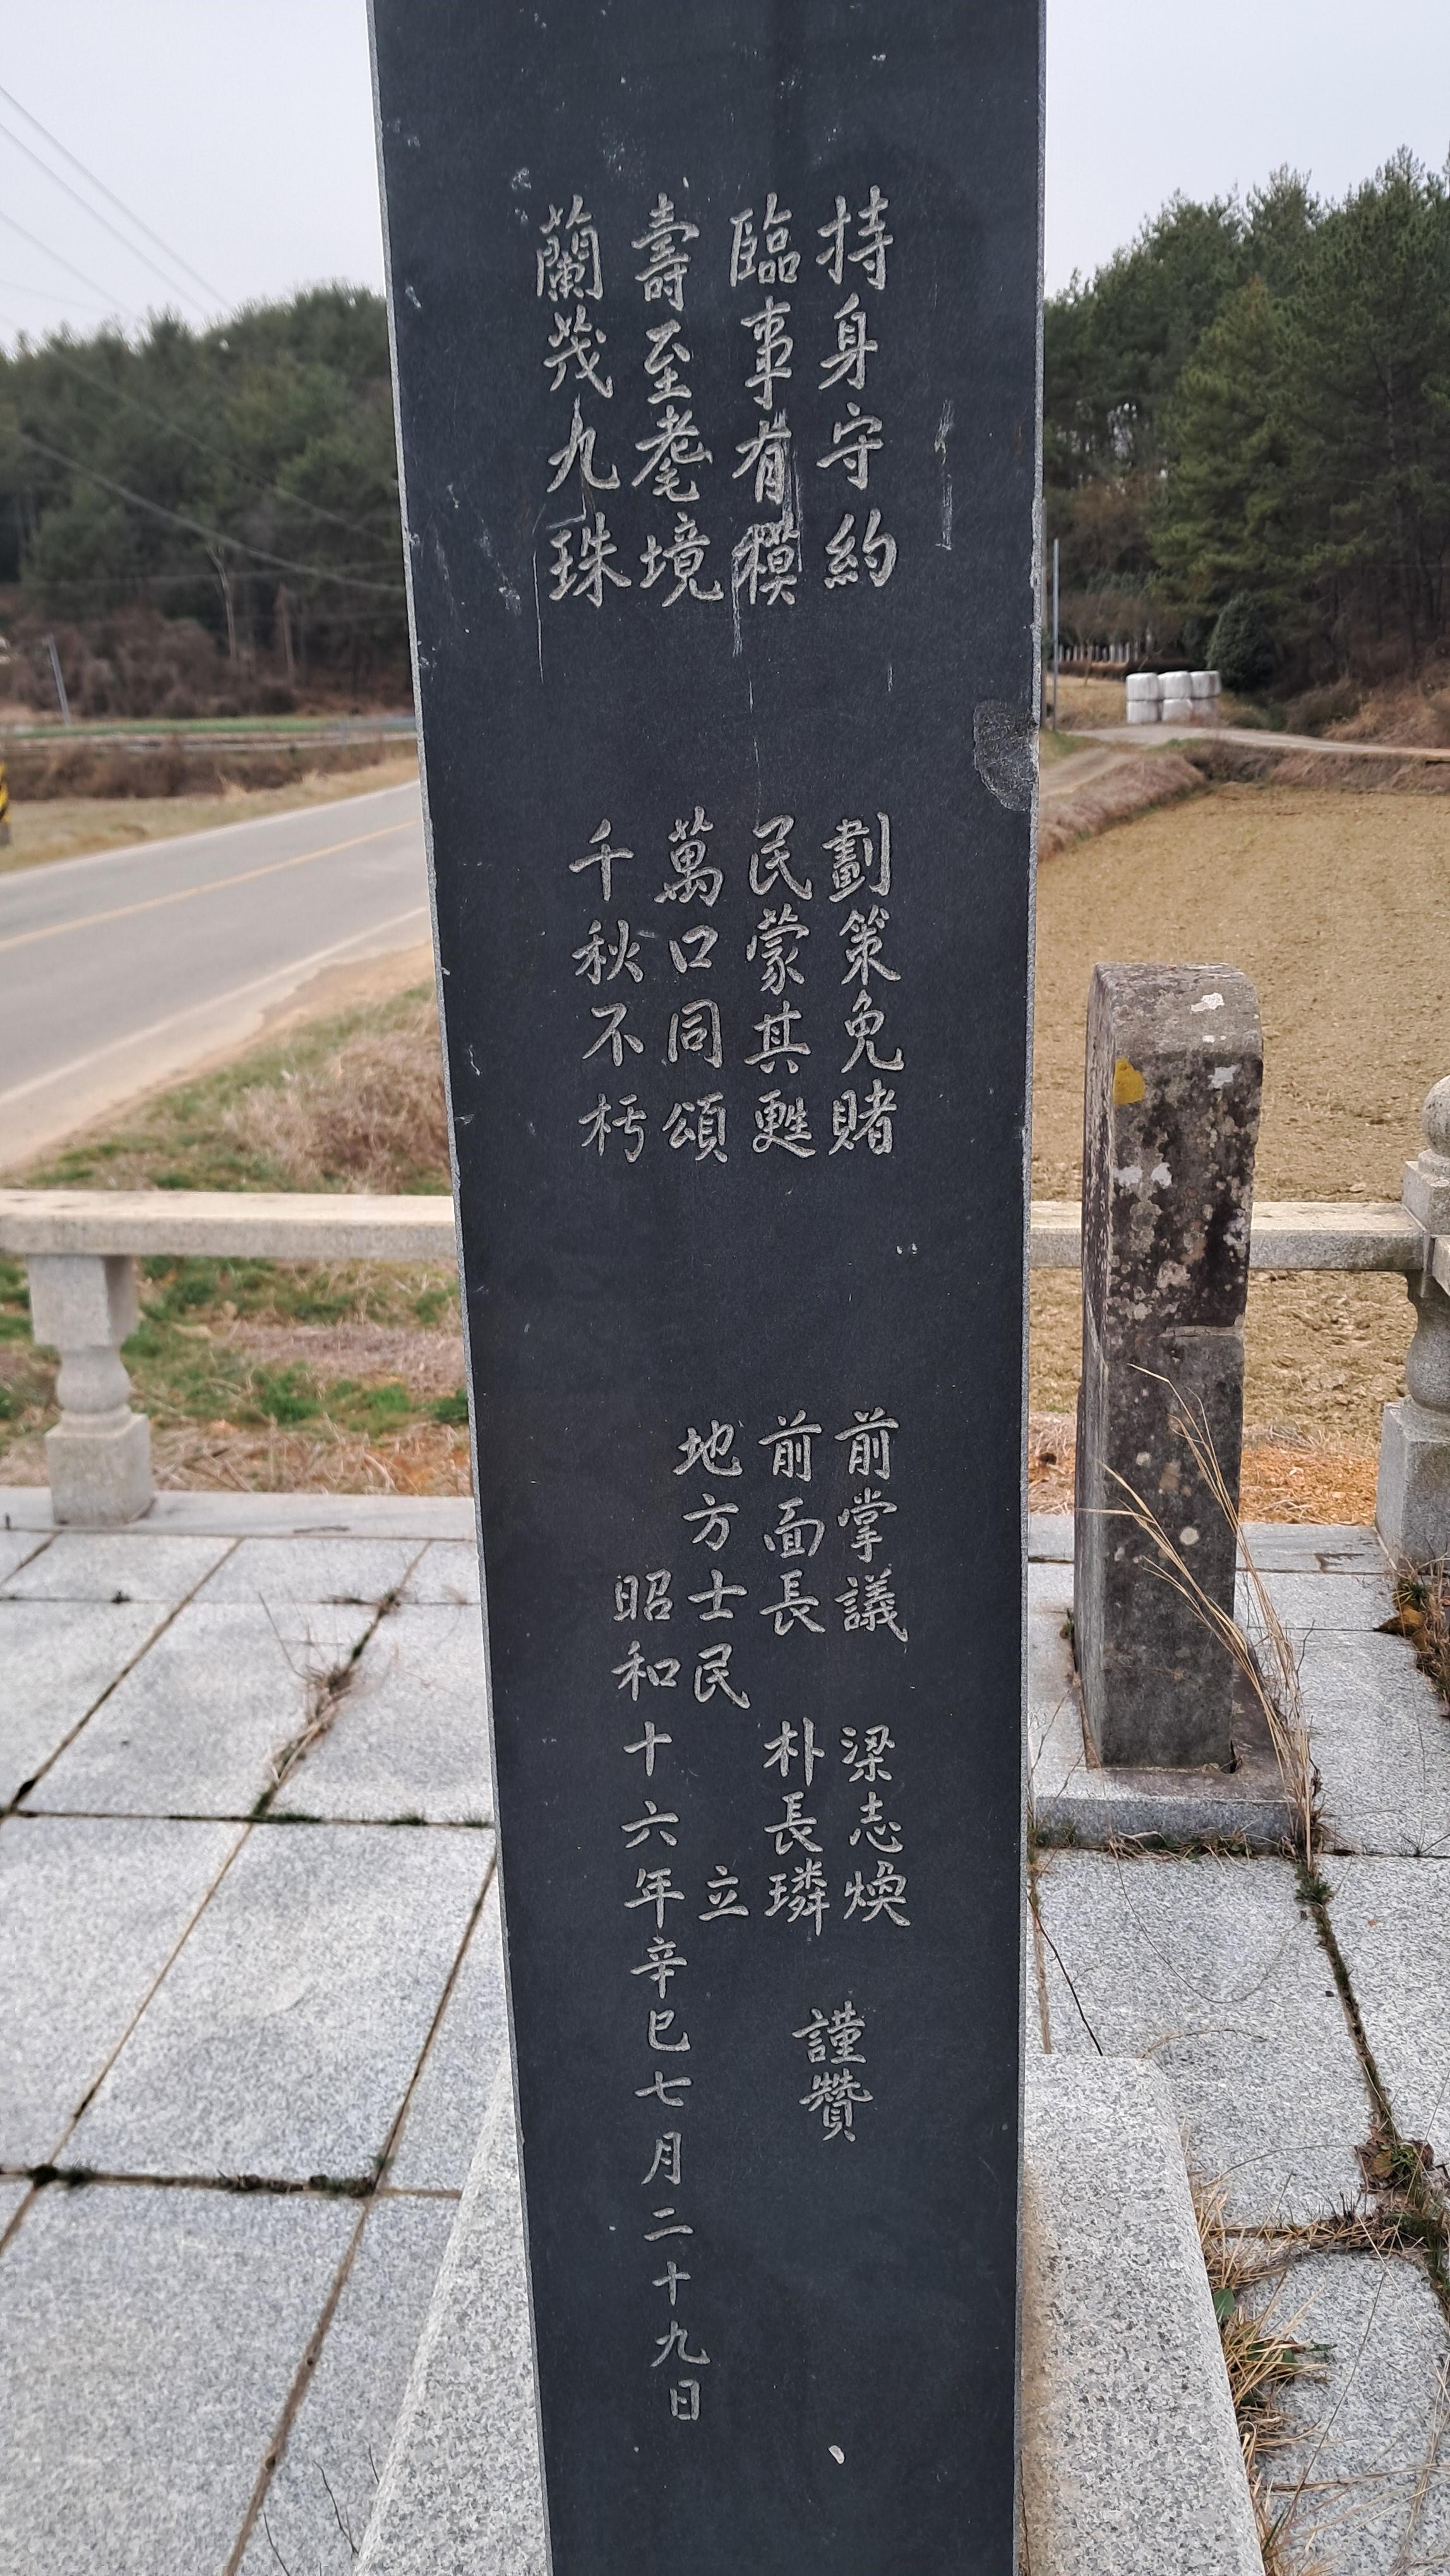 持身守約
臨事有模
壽至耄境
蘭茂九珠
劃策免賭
民蒙其甦
萬口同頌
千秋不朽
前掌議 梁志煥 謹贊
前面長 朴長璘
地方士民 立
昭和十六年辛巳七月二十九日